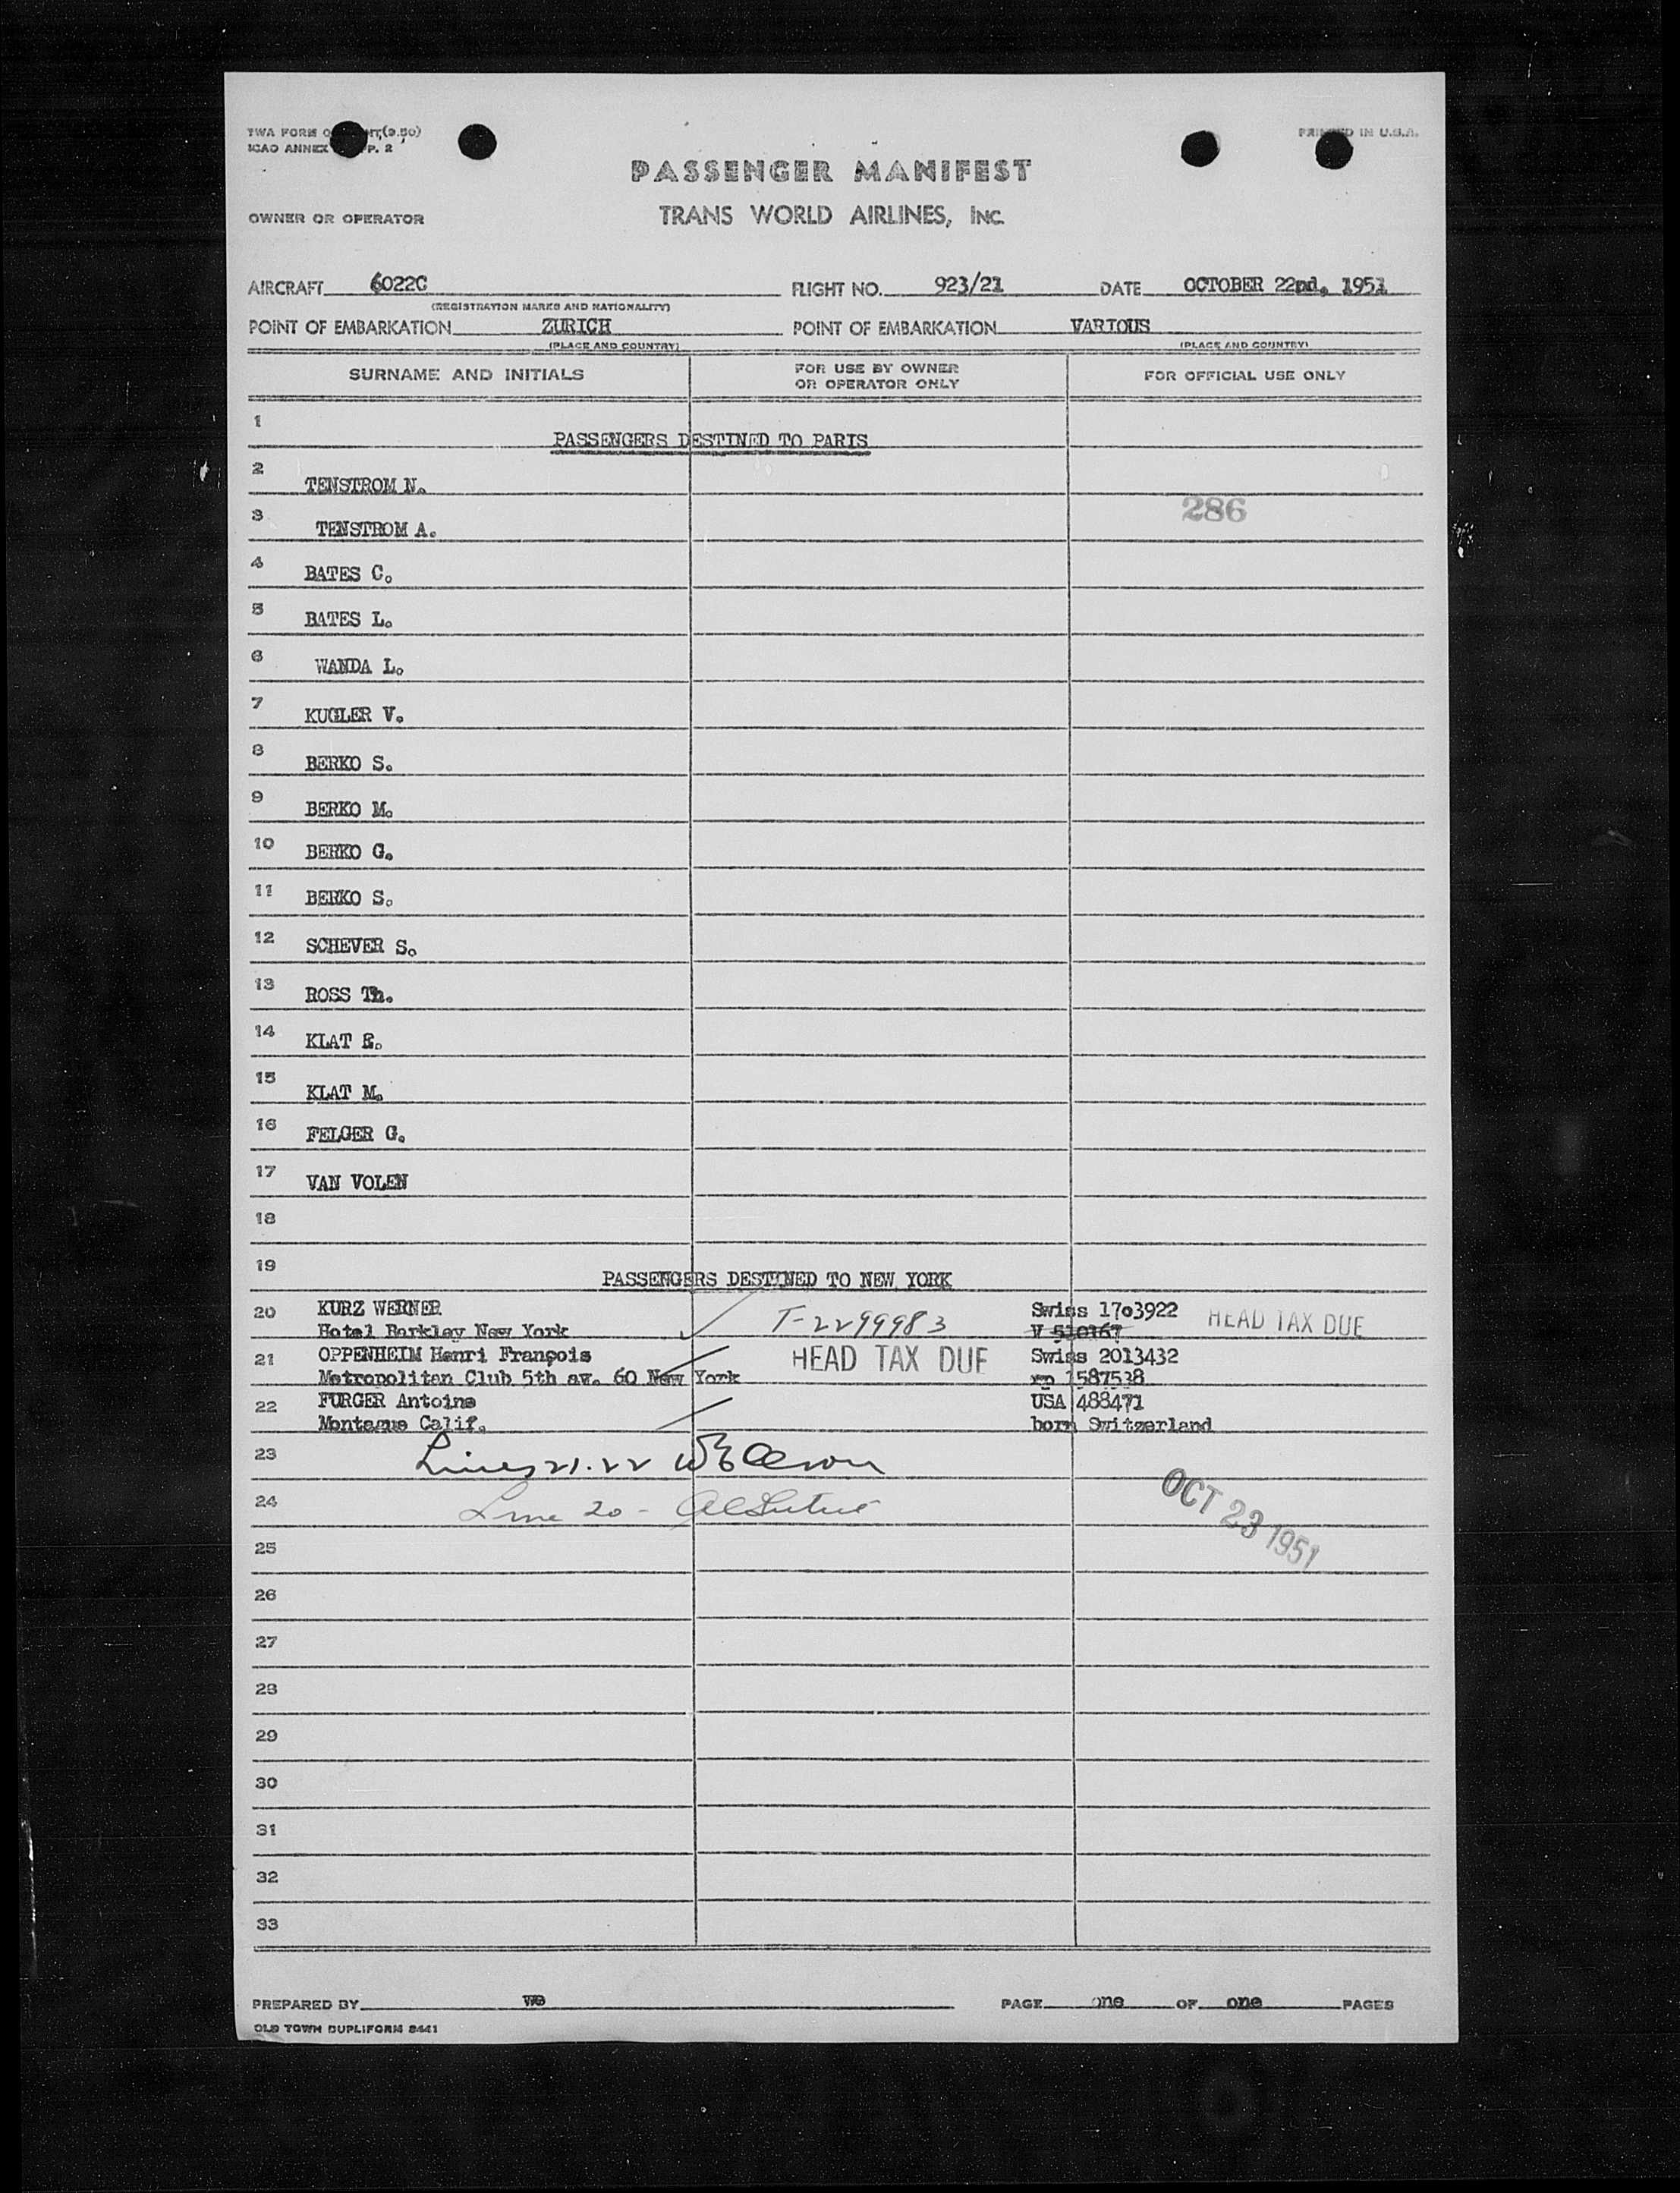 TWA FORM (9.50)
PRINTED IN U.S.A.
ICAO ANNEX P. 2
PASSENGER MANIFEST
OWNER OR OPERATOR TRANS WORLD AIRLINES, INC.
AIRCRAFT 6022C FLIGHT NO. 923/21 DATE OCTOBER 22nd, 1951
(REGISTRATION MARKS AND NATIONALITY)
POINT OF EMBARKATION ZURICH POINT OF EMBARKATION VARIOUS
(PLACE AND COUNTRY) (PLACE AND COUNTRY)
SURNAME AND INITIALS FOR USE BY OWNER OR OPERATOR ONLY FOR OFFICIAL USE ONLY
1 PASSENGERS DESTINED TO PARIS
2 TENSTROM N.
286
3 TENSTROM A.
4 BATES C.
5 BATES L.
6 WANDA L.
7 KUGLER V.
8 BERKO S.
9 BERKO M.
10 BERKO G.
11 BERKO S.
12 SCHEVER S.
13 ROSS Th.
14 KLAT E.
15 KLAT M.
16 FELGER G.
17 VAN VOLEN
18
19 PASSENGERS DESTINED TO NEW YORK
20 KURZ WERNER T-2299983 Swiss 17o3922 HEAD TAX DUE
Hotel Barkley New York V 510167
21 OPPENHEIM Henri François HEAD TAX DUE Swiss 2013432
Metropolitan Club 5th av. 60 New York rp 1587538
22 FURGER Antoine USA 488471
Montague Calif. born Switzerland
23 Lines 21.22
24 Line 20 -
OCT 23 1951
25
26
27
28
29
30
31
32
33
PREPARED BY we PAGE one OF one PAGES
OLD TOWN DUPLIFORM 8441